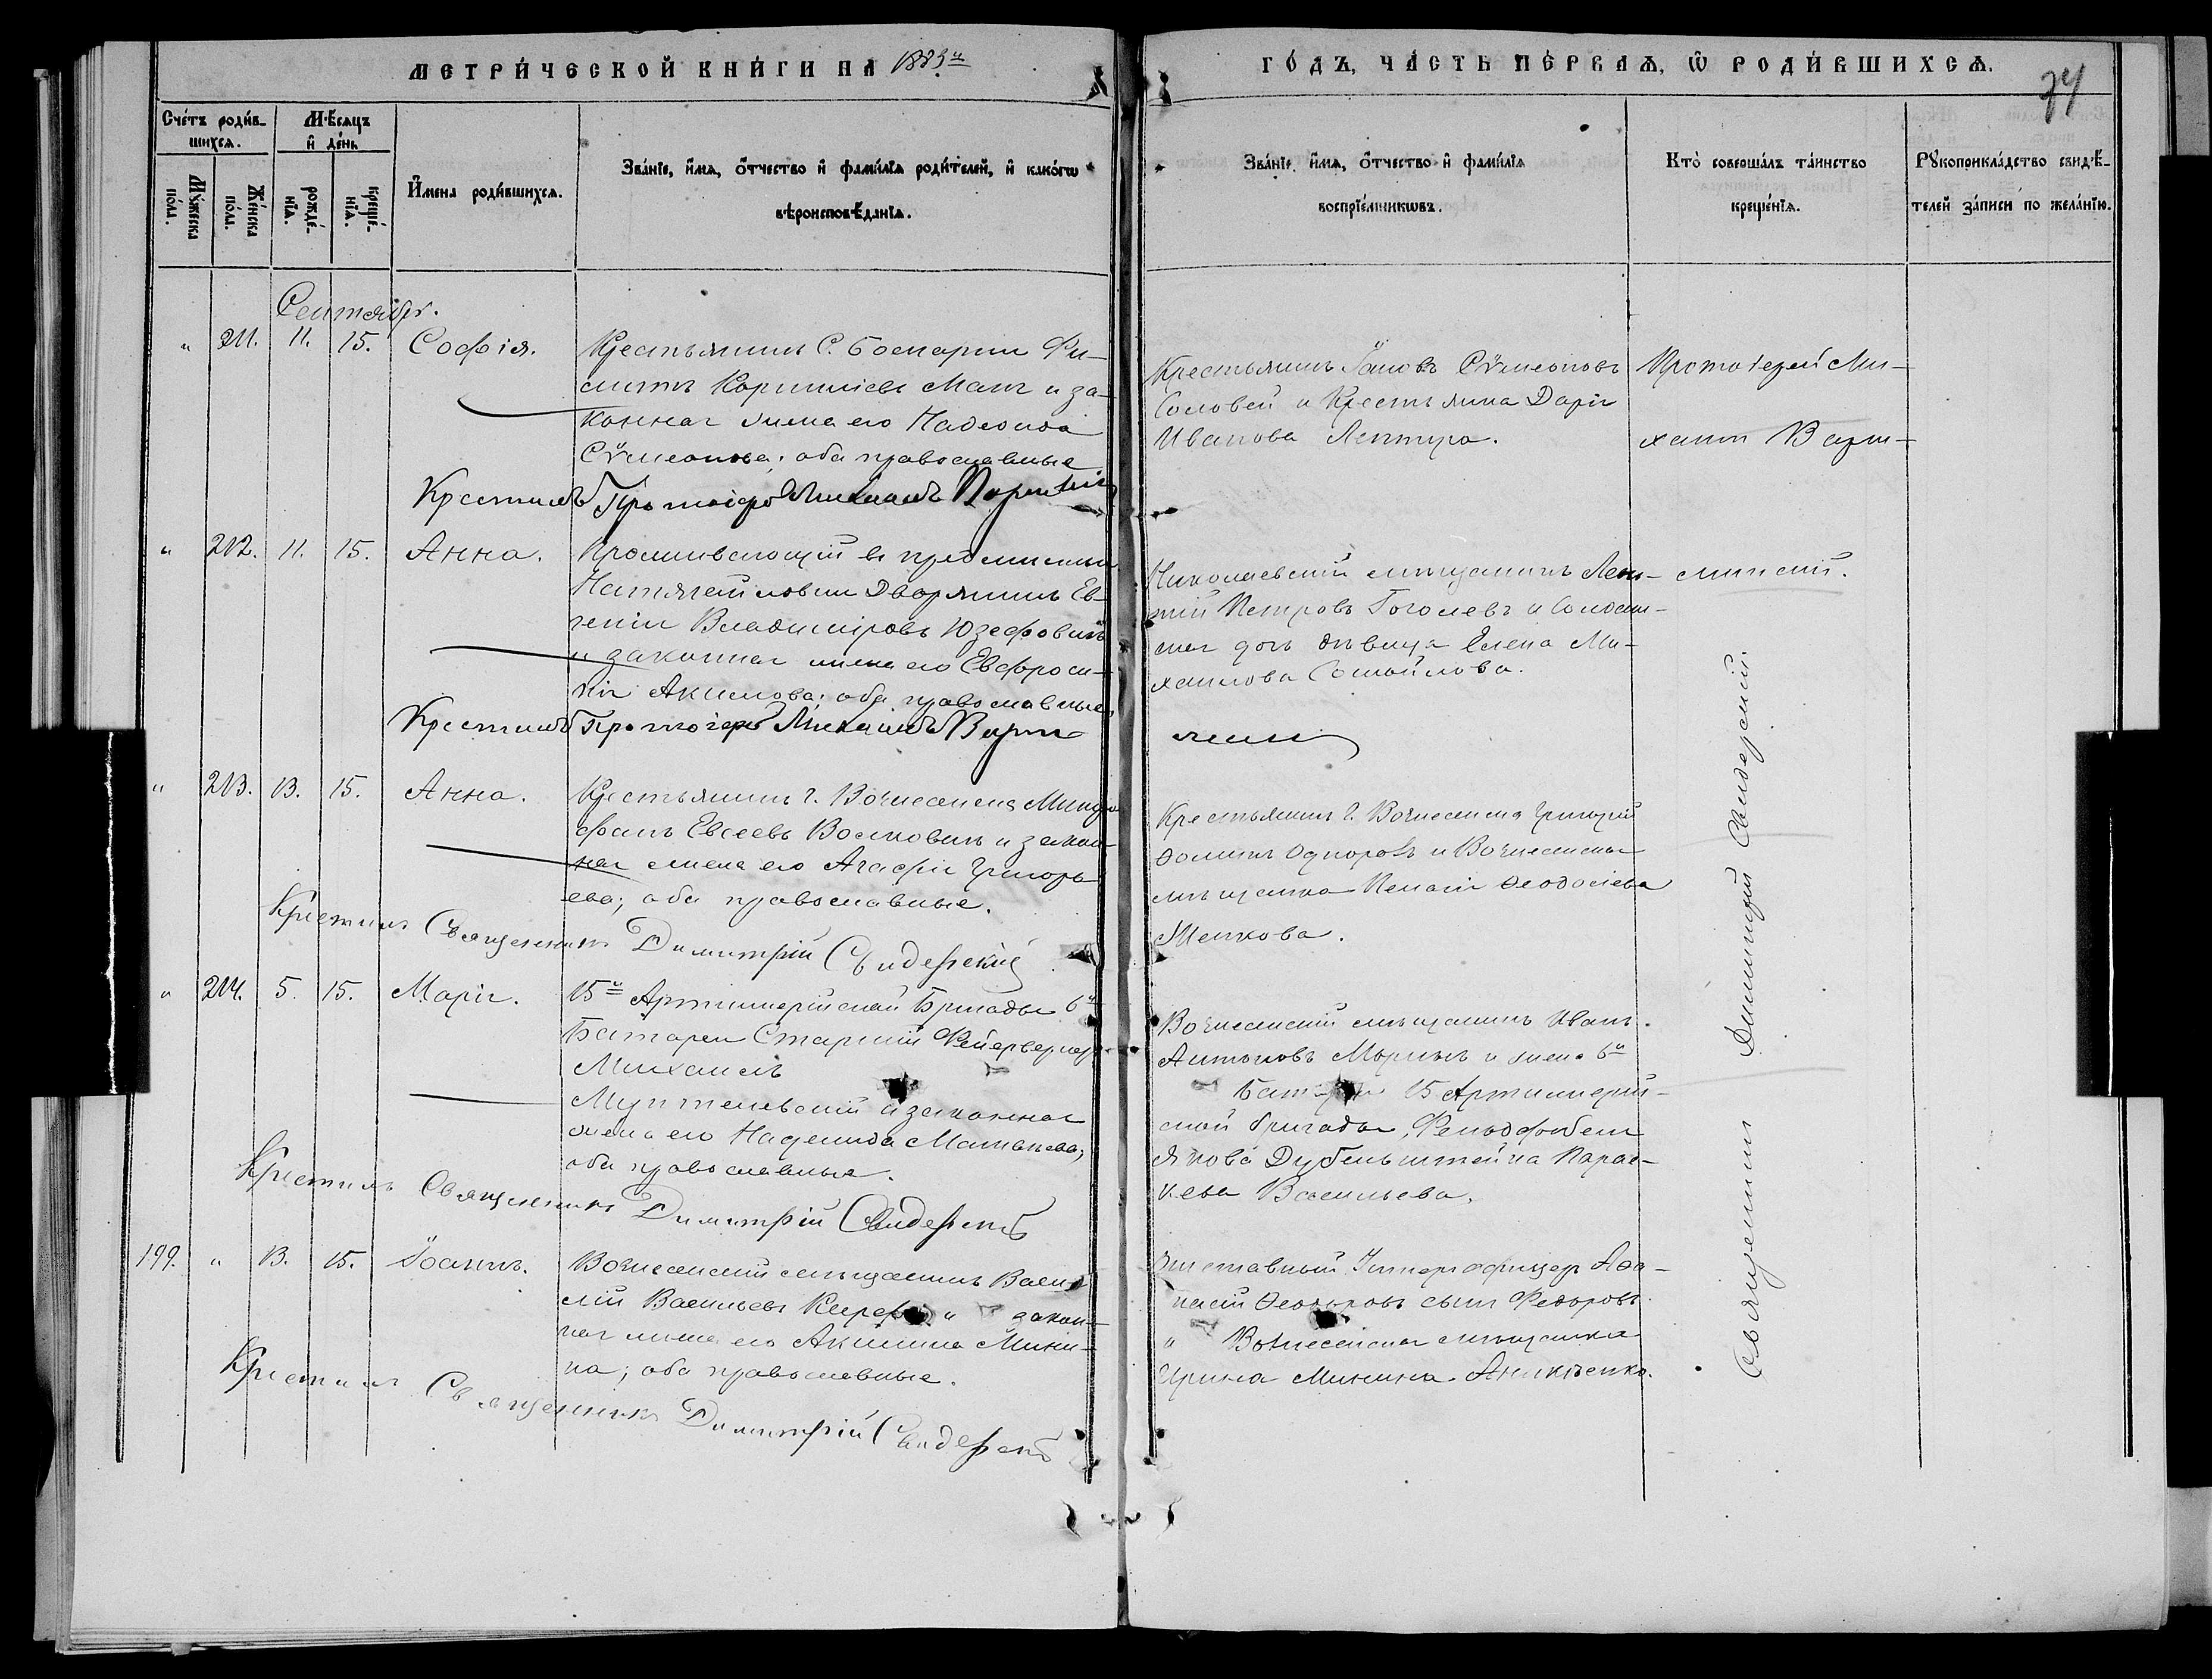 МЕТРИ́ЧЕСКОЙ КНИ́ГИ НА 1883й
ГО́ДЪ, ЧА́СТЬ ПЕ́РВАѦ, Ѡ РОДИ́ВШИХСѦ.
74
Сче́тъ роди́в-
шихсѧ.
Мꙋ́жеска
по́ла.
Же́нска
по́ла.
Мѣ́сѧцъ
и҆ де́нь
рожде́-
нїѧ.
креще́-
нїѧ.
И҆мена роди́вшихсѧ.
Зва́нїе, и҆́мѧ, ѻ҆́тчество и҆ фамі́лїѧ роди́телей, и҆ како́гѡ
вѣроисповѣ́данїѧ.
Зва́нїе, и҆́мѧ, ѻ҆́тчество и҆ фамі́лїѧ
воспрїе́мникѡвъ.
Кто̀ соверша́лъ та́инство
креще́нїѧ.
Рꙋкоприкла́дство свидѣ́-
телей за́писи по жела́нїю.
Сентябрь.
" 211. 11. 15. Софія.
Крестьянинъ С. Боспарии Фи-
липпъ Корнилiевъ Манъ и за-
конная жена его Надежда
Сѵмеонова; оба православные
Крестилъ Протоіерей Михаилъ
Крестьянинъ Іаковъ Сѵмеоновъ
Соловей и Крестьянка Дарія
Иванова Лептура.
Протоіерей Ми-
хаилъ Варт-
" 212. 11. 15. Анна.
Проживающій въ предмѣстьи
Натягайловки Дворянинъ Ев-
геній Владиміровъ Юзефовичъ
и законная жена его Евфроси-
нія Акимова; оба православные
Крестилъ Протоіерей Михаилъ Варт
минскій
Николаевскій мѣщанинъ Леон-
тій Петровъ Гоголевъ и Солдат-
ская дочь дѣвица Елена Ми-
хаилова Самойлова.
минскій.
" 213. 13. 15. Анна.
Крестьянинъ г. Вознесенска Митро
фанъ Евсеевъ Войтовичъ и закон-
ная жена его Агафія Григорь-
ева; оба православные.
Крестилъ Священникъ Димитрій Свидерскій
Крестьянинъ г. Вознесенска Григорій
Ѳоминъ Одноровъ и Вознесенская
мѣщанка Пелагія Ѳеодосіева
Мелкова.
" 214. 5. 15. Марія.
15й Артиллерійской Бригады 6й
Батареи Старшій Фейерверкеръ
Михаилъ
и законная
жена его Надежда Матвѣева;
оба православные.
Крестилъ Священникъ Димитрій Свидерскій
Вознесенскій мѣщанинъ Иванъ
Антоновъ и жена 6й
Батареи 15 Артиллерій-
ской бригады, Фельдфебеля
Якова Дубельштейна Парас-
кева Васильева.
199. " 13. 15. Іоаннъ.
Вознесенскій мѣщанинъ Васи-
лій Васильевъ и закон-
ная жена его Акилина Мини-
на; оба православные.
Крестилъ Священникъ Димитрій Свидерскій
Отставный Унтерофицеръ Аѳа-
насій Ѳеодоровъ сынъ Федоровъ
и Вознесенская мѣщанка
Ирина Минина Аникіенко.
Священникъ Димитрій Свидерскій.